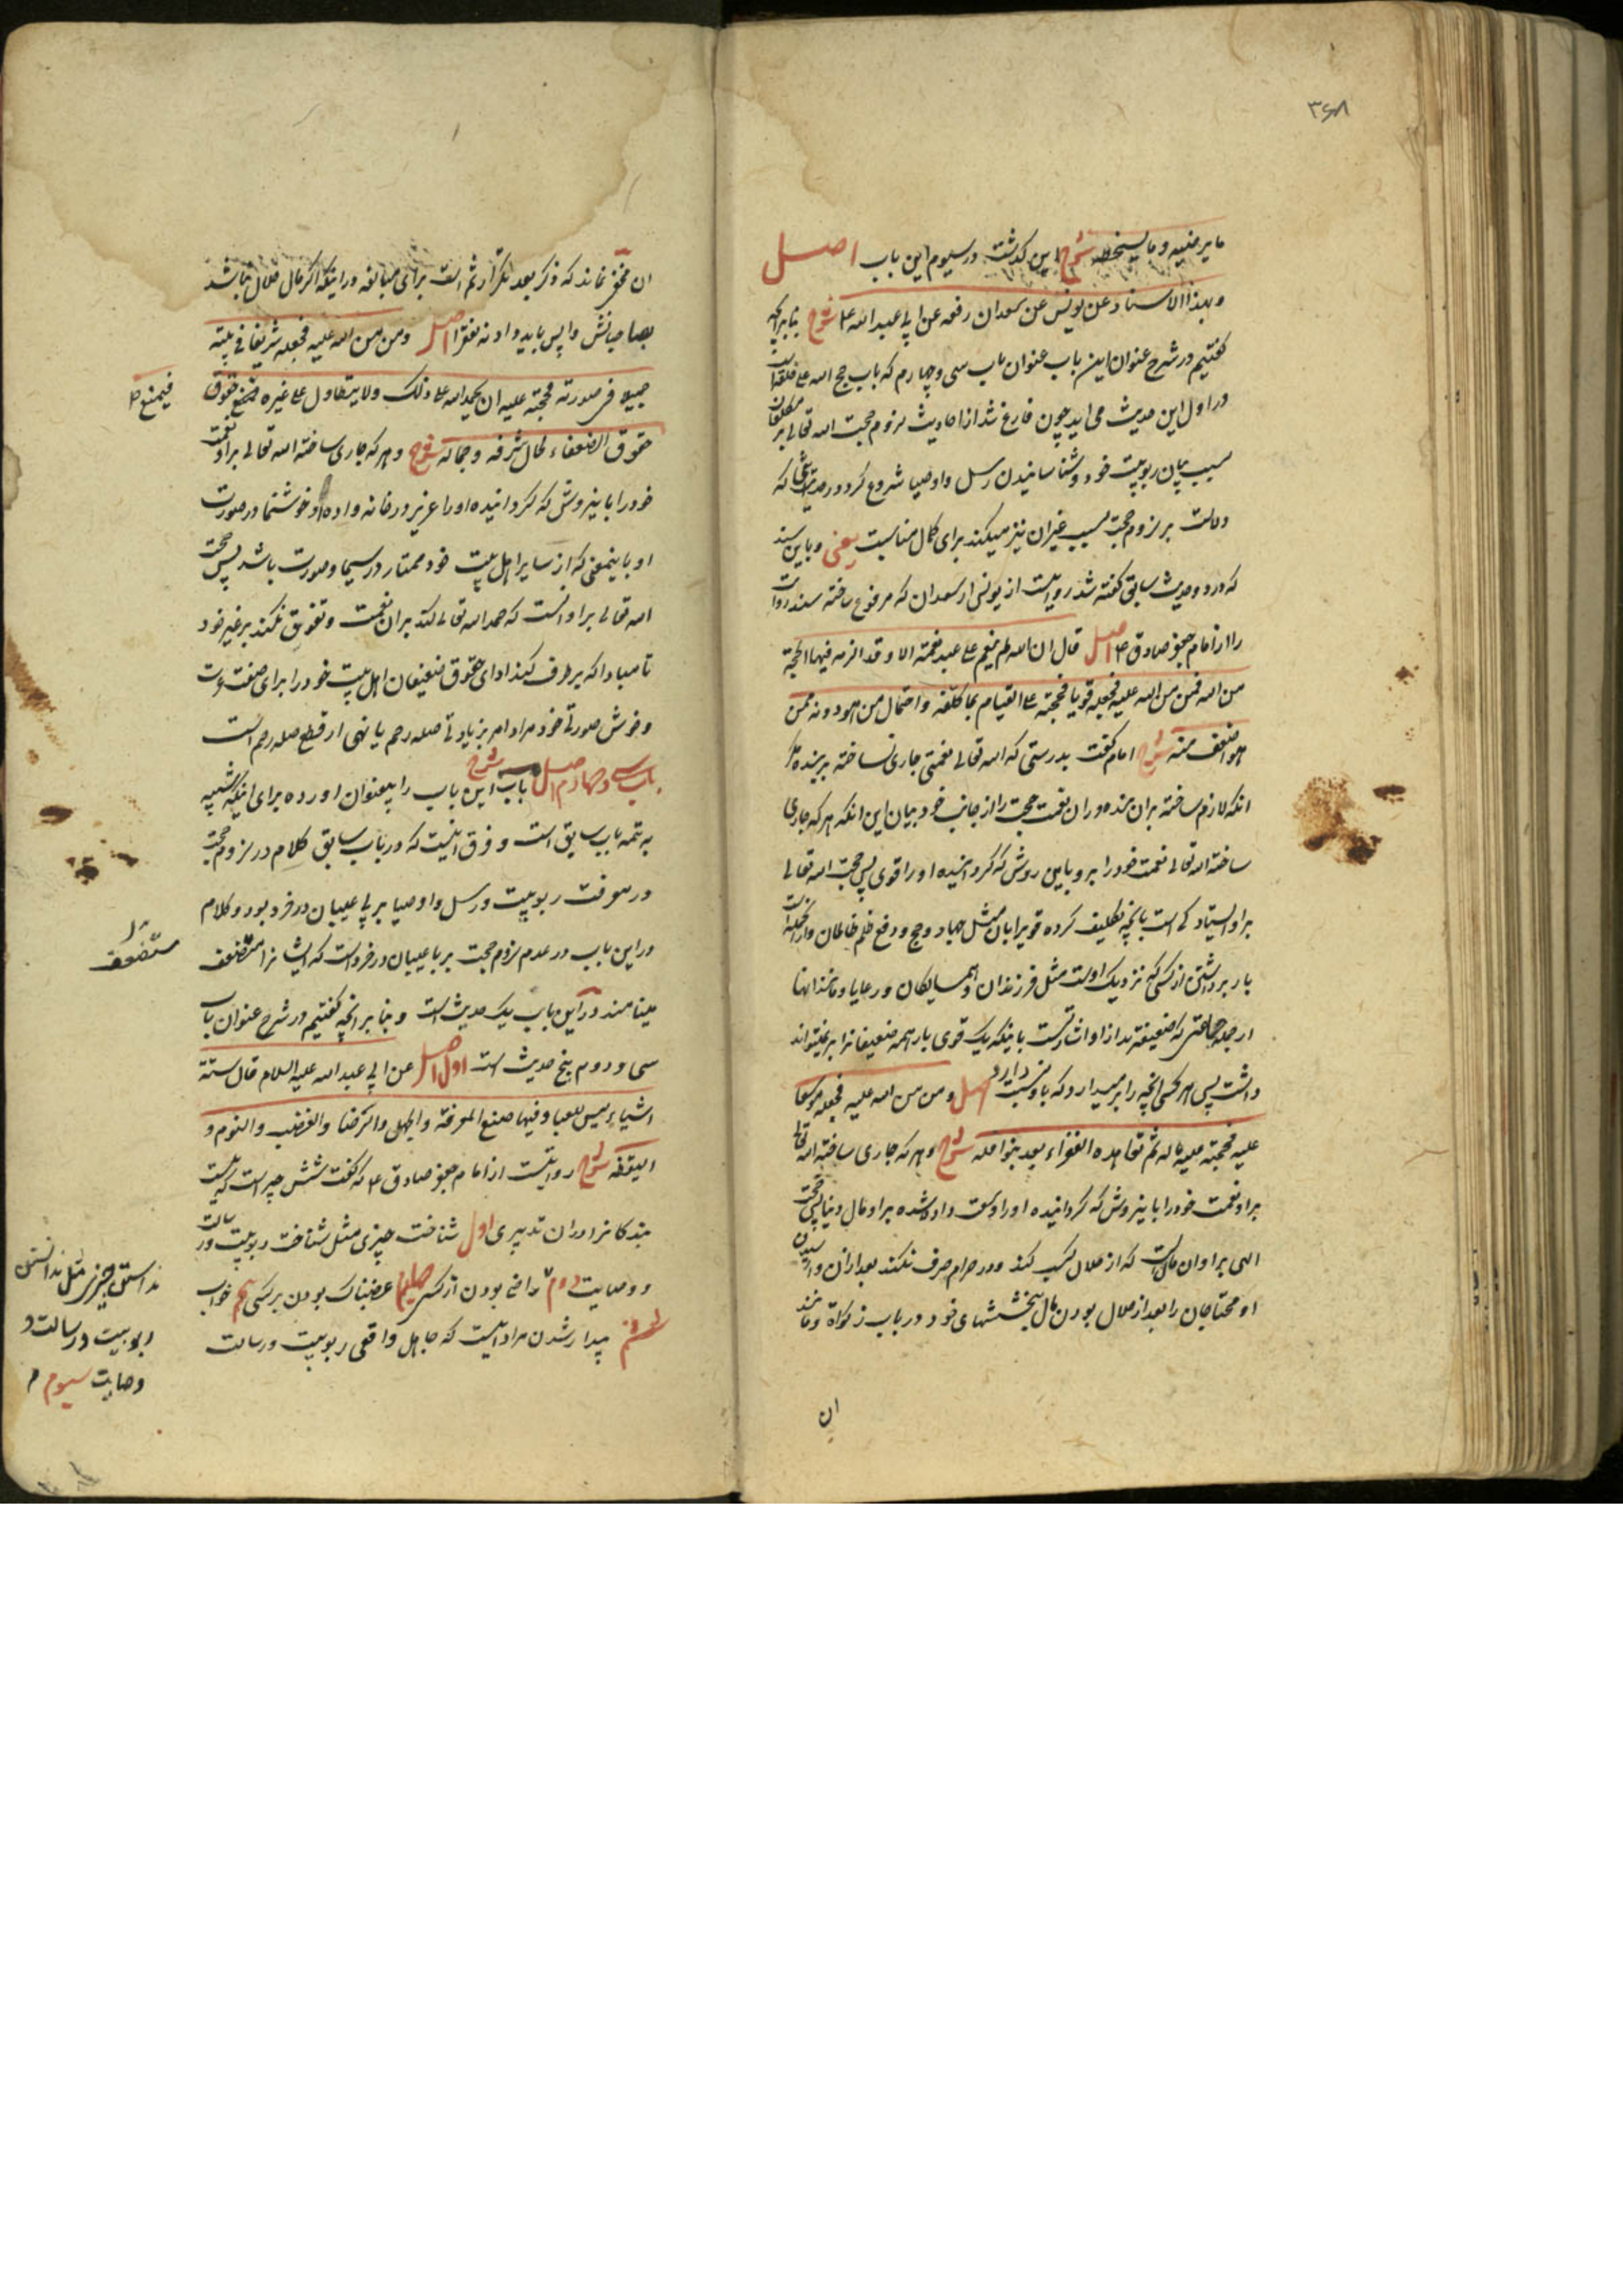 ۳۶۸
ما یرضیه و ما یسخطه شرح این گذشت در سیوم این باب اصل
و بهذا الاسناد عن یونس عن سعدان رفعه عن ابی عبد الله ع شرح بنابر آنچه
گفتیم در شرح عنوان این باب عنوان باب سی و چهارم که باب حجج الله علی خلقه است
در اول این حدیث می آید چون فارغ شد از احادیث لزوم حجت الله تعالی بر مکلفان
بسبب بیان ربوبیت خود و شناسانیدن رسل و اوصیا شروع کرد در حدیثی که
دلالت بر لزوم حجت بسبب غیر آن نیز میکند برای کمال مناسبت یعنی و باین سند
که در دو حدیث سابق گفته شد روایت از یونس از سعدان که مرفوع ساخته سند روایت
را از امام جعفر صادق ع اصل قال ان الله لم ینعم علی عبد نعمة الا و قد الزمه فیها الحجة
من الله فمن من الله علیه فجعله قویا فحجته علیه القیام بما کلفه و احتمال من هو دونه ممن
هو اضعف منه شرح امام گفت بدرستی که الله تعالی نعمتی جاری نساخته بر بنده مگر
آنکه لازم ساخته بر آن بنده در آن نعمت حجت را از جانب خود بیان این آنکه هر که جاری
ساخته الله تعالی نعمت خود را بر او باین روش که گردانیده او را قوی پس حجت الله تعالی
بر او ایستادگی است بآنچه تکلیف کرده قویرا بآن مثل جهاد و حج و دفع ظلم ظالمان و از جمله آنست
بار برداشتن از کسی که نزدیک اوست مثل فرزندان و همسایگان و رعایا و مانند آنها
از جمله جماعتی که ضعیفترند از او اشارتست باینکه یک قوی بار همه ضعیفانرا بر نمیتواند
داشت پس هر کسی آنچه را بر میدارد که باو نسبت دارد اصل و من من الله علیه فجعله موسعا
علیه فحجته علیه ماله ثم تعاهده الفقراء بعد بنوافله شرح و هر که جاری ساخته الله تعالی
بر او نعمت خود را باینروش که گردانیده او را وسعت داده شده بر او مال دنیا پس حجت
الهی بر او آن مالست که از حلال کسب کند و در حرام صرف نکند بعد از آن وارسیدن
او محتاجان را بعد از حلال بودن مال ببخششهای خود در باب زکوة و مانند
ان
ان مخفی نماند که ذکر بعد تکرار ثم است برای مبالغه در اینکه اگر مال حلال نباشد
بصاحبانش واپس باید داد نه بفقرا اصل و من من الله علیه فجعله شریفا فی بیته
جمیلا فی صورته فحجته علیه ان یحمد الله علی ذلک و لا یتطاول علی غیره فیمنع حقوق
فیمنع
حقوق الضعفاء لحال شرفه و جماله شرح و هر که جاری ساخته الله تعالی بر او نعمت
خود را باینروش که گردانیده او را عزیز در خانه واده او خوشنما در صورت
او باینمعنی که از سایر اهل بیت خود ممتاز در سیما و صورت باشد پس حجت
الله تعالی بر او آنست که حمد الله تعالی کند بر آن نعمت و تفوق نکند بر غیر خود
تا مبادا که بر طرف کند ادای حقوق ضعیفان اهل بیت خود را برای عزت
و خوش صورتی خود مراد امر بزیادتی صله رحم یا نهی از قطع صله رحم است
باب سی و چهارم اصل باب شرح این باب را بیعنوان آورده برای اینکه شبیه
به تتمه باب سابق است و فرق اینست که در باب سابق کلام در لزوم حجت
در معرفت ربوبیت و رسل و اوصیا بر پی عیبان در فرد بود و کلام
در این باب در عدم لزوم حجت بر با عیبان در فرد است که ایشانرا مستضعف
مستضعف
مینامند در این باب یک حدیث است و بنابر آنچه گفتیم در شرح عنوان باب
سی و دوم پنج حدیث است اول اصل عن ابی عبد الله علیه السلام قال ستة
اشیاء لیس للعباد فیها صنع المعرفة و الجهل و الرضا و الغضب و النوم و
الیقظة شرح روایتست از امام جعفر صادق ع که گفت شش چیز است که نیست
بندگانرا در آن تدبیری اول شناخت چیزی مثل شناخت ربوبیت و رسالت
و وصایت دوم راضی بودن از کسی چهارم غضبناک بودن بر کسی پنجم خواب
ششم بیدار شدن مراد اینست که جاهل واقعی ربوبیت و رسالت
ندانستن چیزی مثل ندانستن
ربوبیت و رسالت و
وصایت سیوم